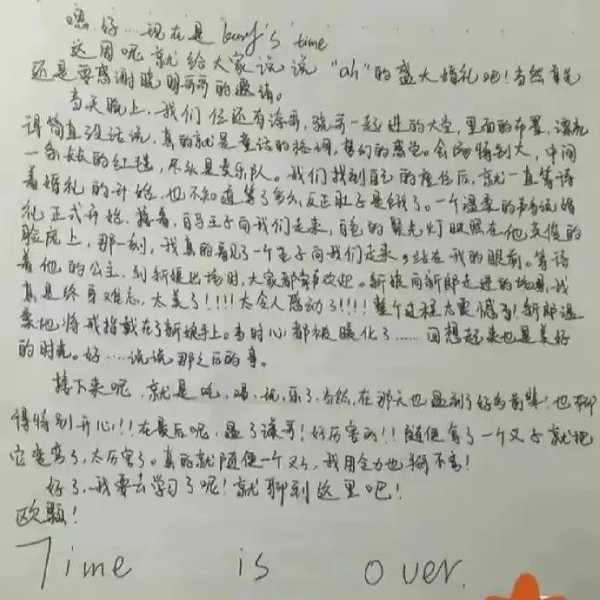 嗯,好……现在是 's time
这周呢就给大家说说“ah”的盛大婚礼吧!当然首先
还是要感谢晓明哥哥的邀请。
当天晚上,我们 还有涛哥,骁哥一起进的大堂,里面的布置,漂亮
得简直没话说,真的就是童话的格调,梦幻的感觉。会场特别大,中间
一条长长的红毯,尽头是音乐队。我们找到自己的座位后,就一直等待
着婚礼的开始,也不知道等了多久,反正肚子是饿了。一个温柔的声音说婚
礼正式开始。接着,白马王子向我们走来,白色的聚光灯映照在他英俊的
脸庞上,那一刻,我真的看见了一个王子向我们走来,站在我的眼前。等待
着他的公主。到新娘出场时,大家都 欢迎。新娘向新郎走进的场景,我
真是终身难忘,太美了!!!!太令人感动了!!!!整个过程太震憾了!新郎温
柔地将戒指戴在了新娘手上。当时心都被暖化了……回想起来也是美好
的时光。好……说说那之后的事。
接下来呢,就是吃,喝,玩,乐了,当然,在那天也遇到了好多前辈!也聊
得特别开心!!在最后呢,遇了 哥!好厉害的!!随便拿了一个叉子就把
它变弯了,太厉害了。真的就随便一个叉子,我用全力也掰不弯!
好了,我要去学习了呢!就聊到这里吧!
欧颗!
Time is over.